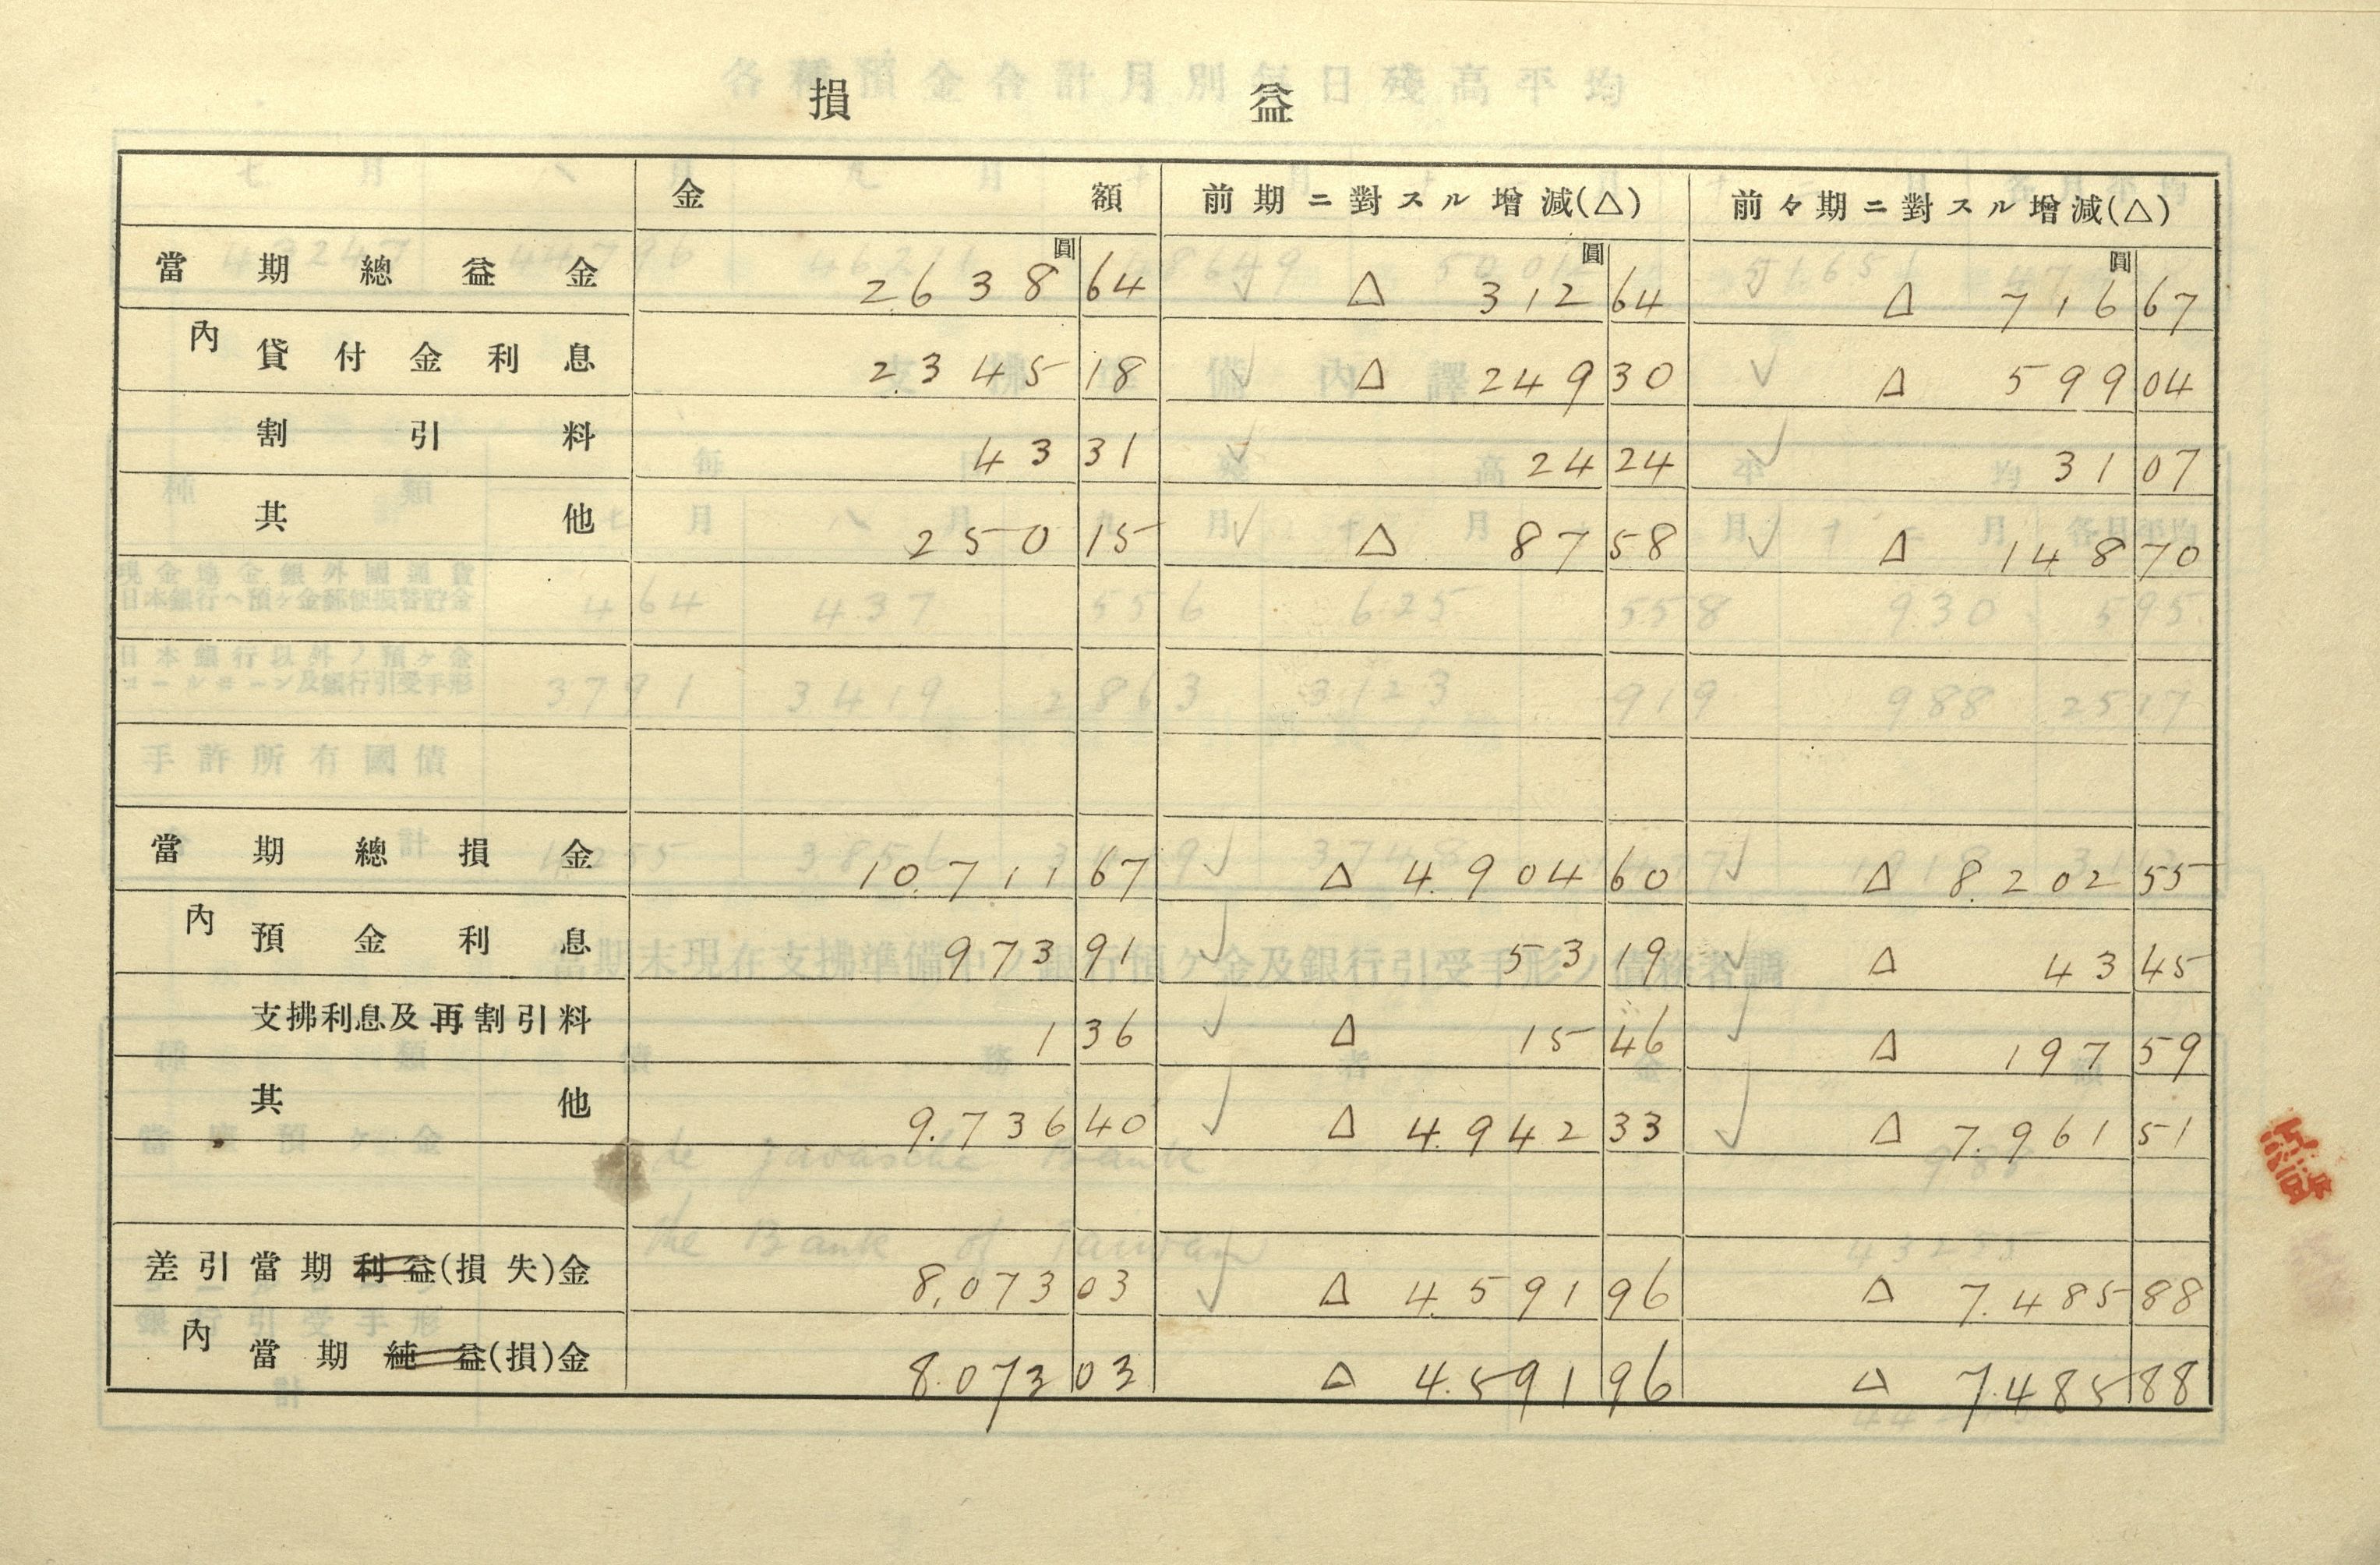 損益
金額 前期ニ對スル増減(△) 前々期ニ對スル増減(△)
圓 圓 圓
當期總益金 2638 64 △ 312 64 △ 716 67
内 貸付金利息 2.345 18 △ 249 30 △ 599 04
割引料 43 31 24 24 31 07
其他 250 15 △ 87 58 △ 148 70
當期總損金 10.711 67 △ 4.904 60 △ 8.202 55
内 預金利息 973 91 53 19 △ 43 45
支拂利息及再割引料 1 36 △ 15 46 △ 197 59
其他 9.736 40 △ 4.942 33 △ 7.961 51
差引當期利益(損失)金 8,073 03 △ 4.591 96 △ 7.485 88
内 當期純益(損)金 8.073 03 △ 4.591 96 △ 7.485 88